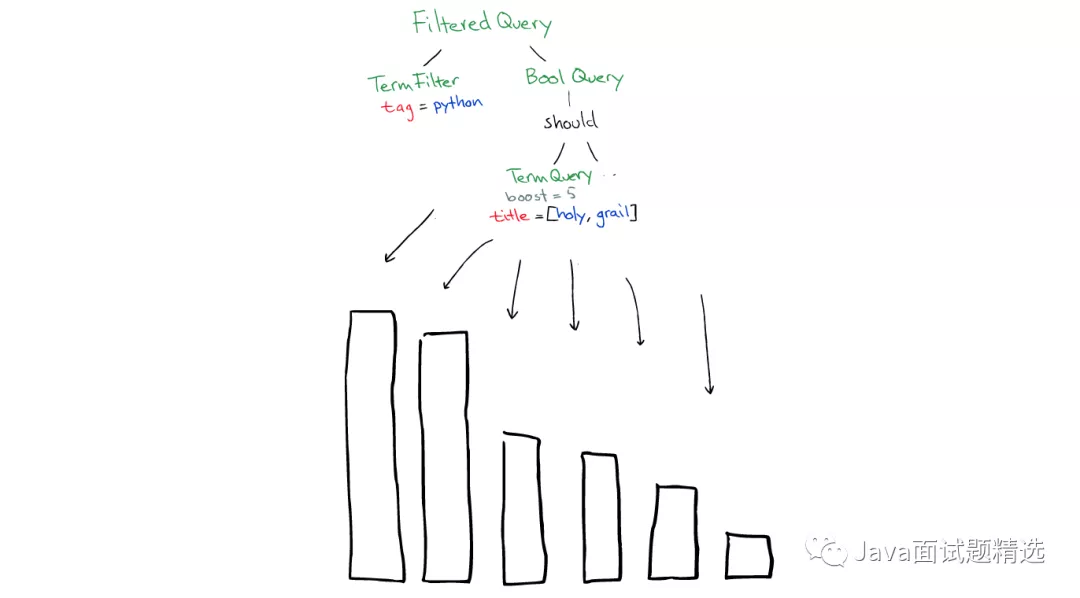 Filtered Query
TermFilter
tag = python
Bool Query
should
TermQuery ..
boost = 5
title = [holy, grail]
Java面试题精选